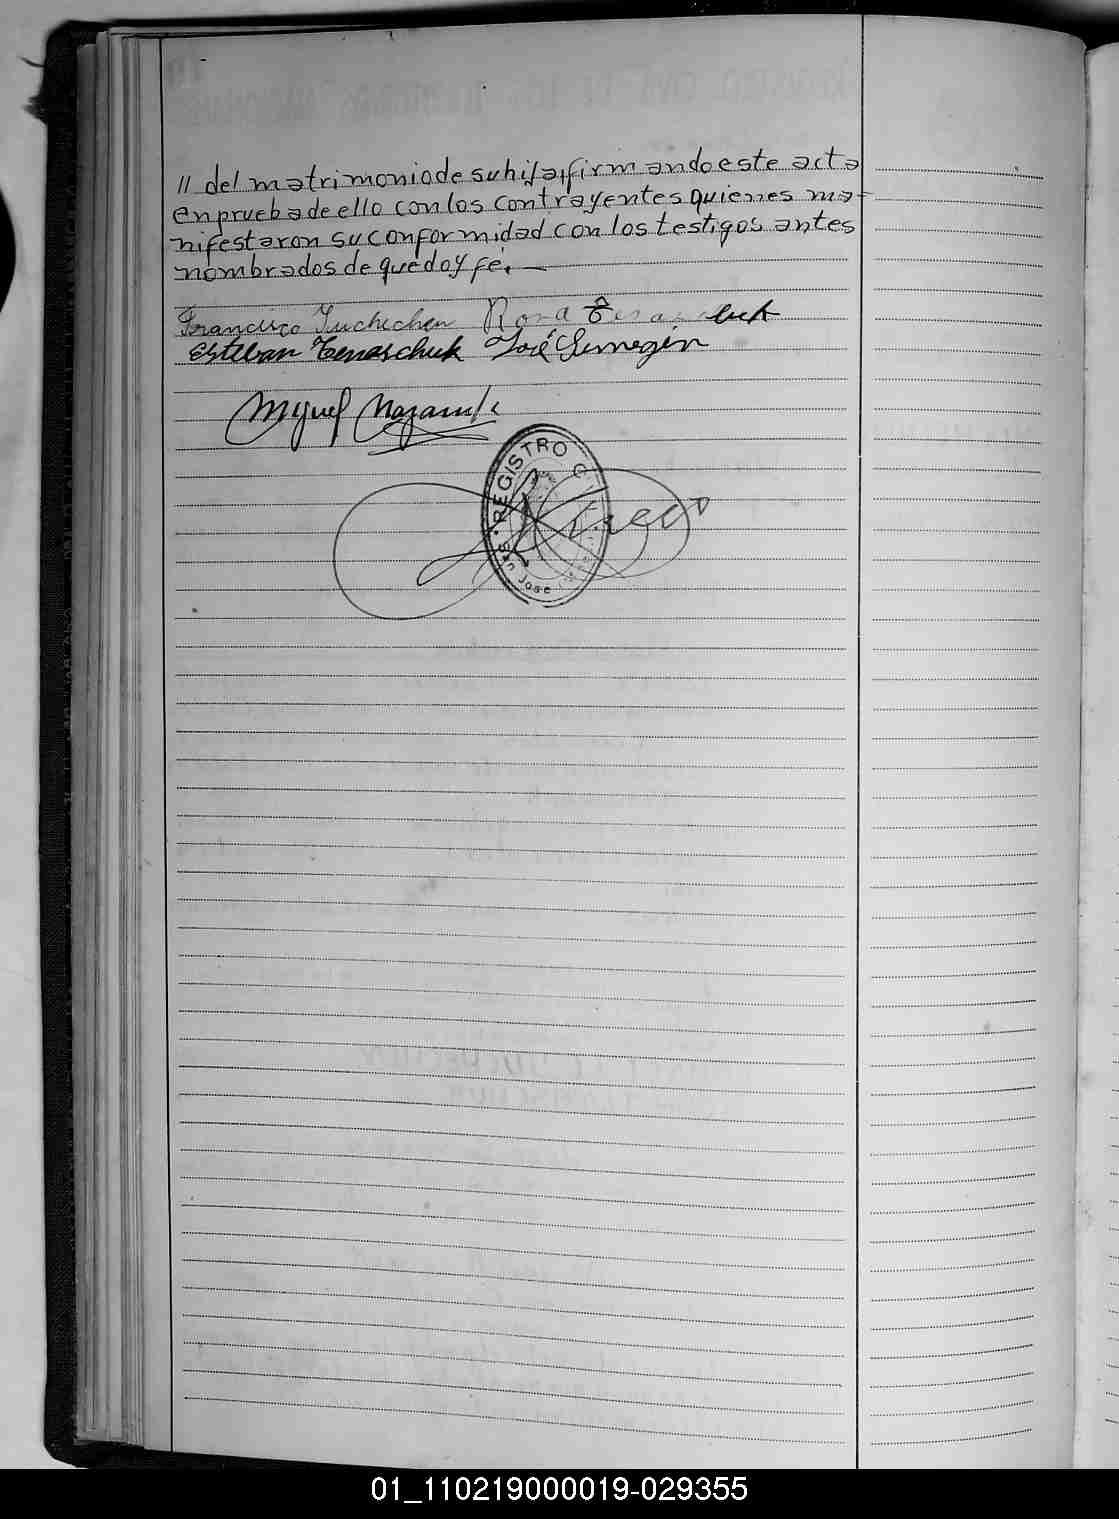 // del matrimonio de su hija, firmando este acta
en prueba de ello con los contrayentes quienes ma-
nifestaron su conformidad con los testigos antes
nombrados de que doy fe. —
Francisco Juchechen Rosa
Esteban Tenaschuk José
Miguel
REGISTRO
San Jose
01_110219000019-029355